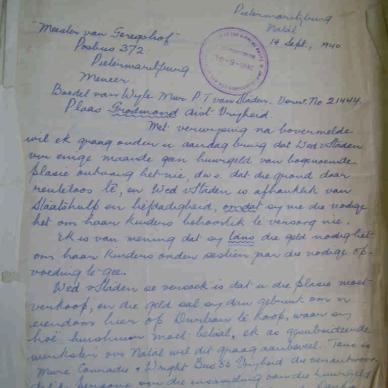 Pietermaritzburg
Natal
14 Sept., 1940
"Meester van Geregshof"
Posbus 372
Pietermaritzburg
Meneer
Boedel van Wyle Mnr P.T. van Staden. Verw. No 21444.
Plaas distr Vryheid
Met verwysing na bovermelde
wil ek graag onder u aandag bring dat Wed v Staden
vir enige maande gan huurgeld van bogenoemde
plasie ontvang het nie, d.w.s. dat die grond daar
renteloos lê, en Wed v Staden is afhanklik van
Staatshulp en liefdadigheid, omdat sy nie die nodige
het om haar kinders behoorlik te versorg nie.
Ek is van mening dat sy die geld nodig het
om haar kinders onder sestien jaar die nodige op-
voeding te gee.
Wed v Staden se versoek is dat u die plasie moet
verkoop, en die geld sal sy dan gebruik om 'n
eiendom hier op Durban te koop, waar sy
hoë huishuur moet betaal, ek as
werkster vir Natal wil dit graag aanbeveel. Tans is
Mnre Conradie & Wright Bus 56 Vryheid die verantwoor-